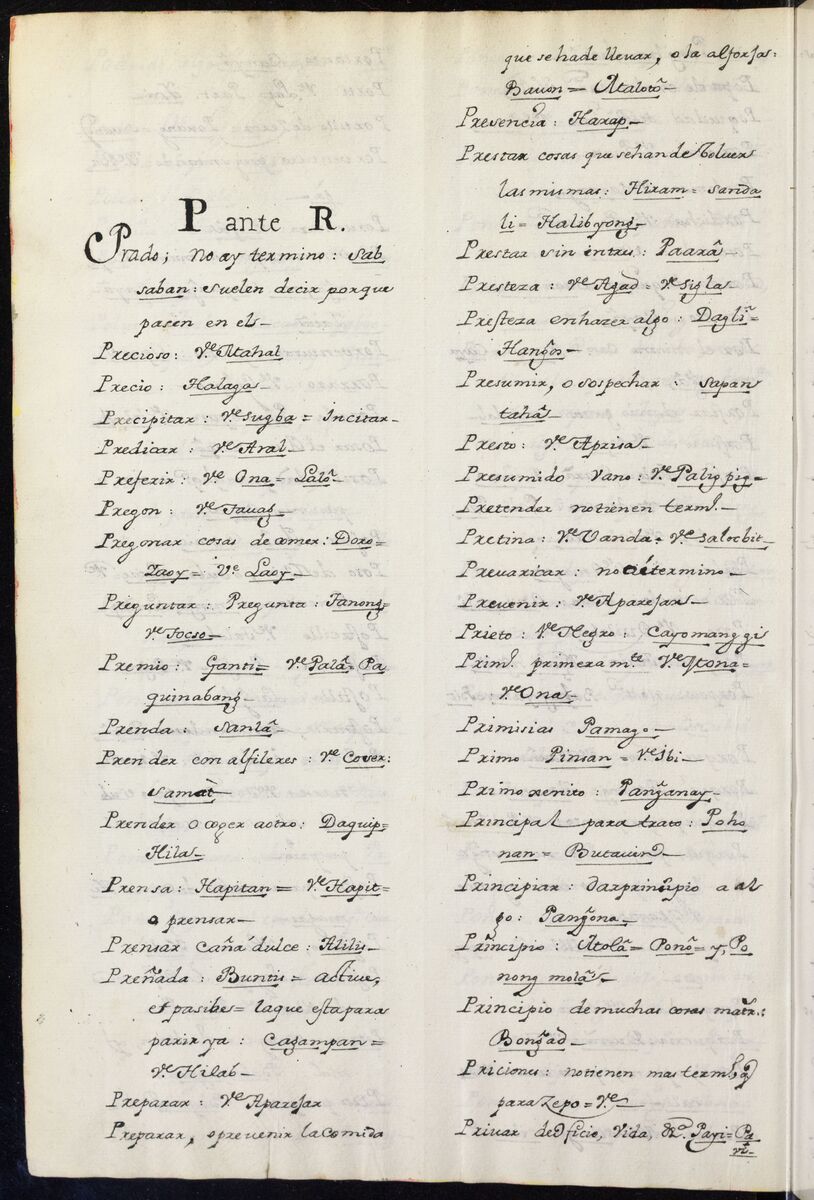 P ante R.
Prado; no ay termino: sab
saban: suelen decir porque
pasen en el –
Precioso: Ve Atahal
Precio: Halaga –
Precipitar: Ve Sugba = Incitar –
Predicar: Ve Aral –
Preferir: Ve Ona = Laló –
Pregon: Ve Tauag –
Pregonar cosas de comer: Doro=
Laoy = Ve Laoy –
Preguntar: Pregunta: Tanong=
Ve Tocso –
Premio: Ganti = Ve Palâ = Pa
guinabang –
Prenda: Sanlâ –
Prender con alfileres: Ve Coser:
Samat
Prender o coger aotro: Daquip=
Hila –
Prensa: Hapitan = Ve Hapit=
o prensar –
Prensar caña dulce: Alilis –
Preñada: Buntis = active,
et pasibe = laque esta para
parir ya: Cagampan =
Ve Hilab –
Preparar: Ve Aparejar
Preparar, o prevenir la comida
que se ha de lleuar, o la alforjas:
Bauon = Atalotô –
Presencia: Harap –
Prestar cosas que se han de bolver
las mismas: Hiram = sanda
li = Halibyong –
Prestar sin intres: Paarâ –
Presteza: Ve Agad = Ve Sigla
Presteza en hazer algo: Dagli=
Hangos –
Presumir, o sospechar: sapan
tahâ –
Presto: Ve Aprisa –
Presumido vano: Ve Paligpig –
Pretender no tienen termo. –
Pretina: Ve Vanda = Ve Salocbit –
Preuaricar: no ai termino –
Preuenir: Ve Aparejar –
Prieto: Ve Negro: Cayomanggi
Primo. primera mte Ve Ytona =
Ve Ona –
Primisias Pamago –
Primo Pinsan = Ve Ibi –
Primoxenito: Panganay –
Principal para trato: Poho
nan = Butauin –
Principiar: dar principio a al
go: Pangona –
Principio: Atolâ = Ponô = y, Po
nong molâ –
Principio de muchas cosas matr.:
Bongad –
Priciones: no tienen mas termo. q
para zepo = Ve
Priuar de oficio, vida, &a. Payi = Pa
vi –